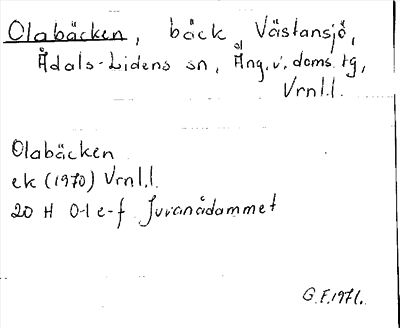 Olabäcken, bäck Västansjö,
Ådals-Lidens sn, Ång.v. doms. tg,
Vrnl.l.
Olabäcken
ek (1970) Vrnl.l.
20 H 0-1 e-f Juvanådammet
G.F. 1971.